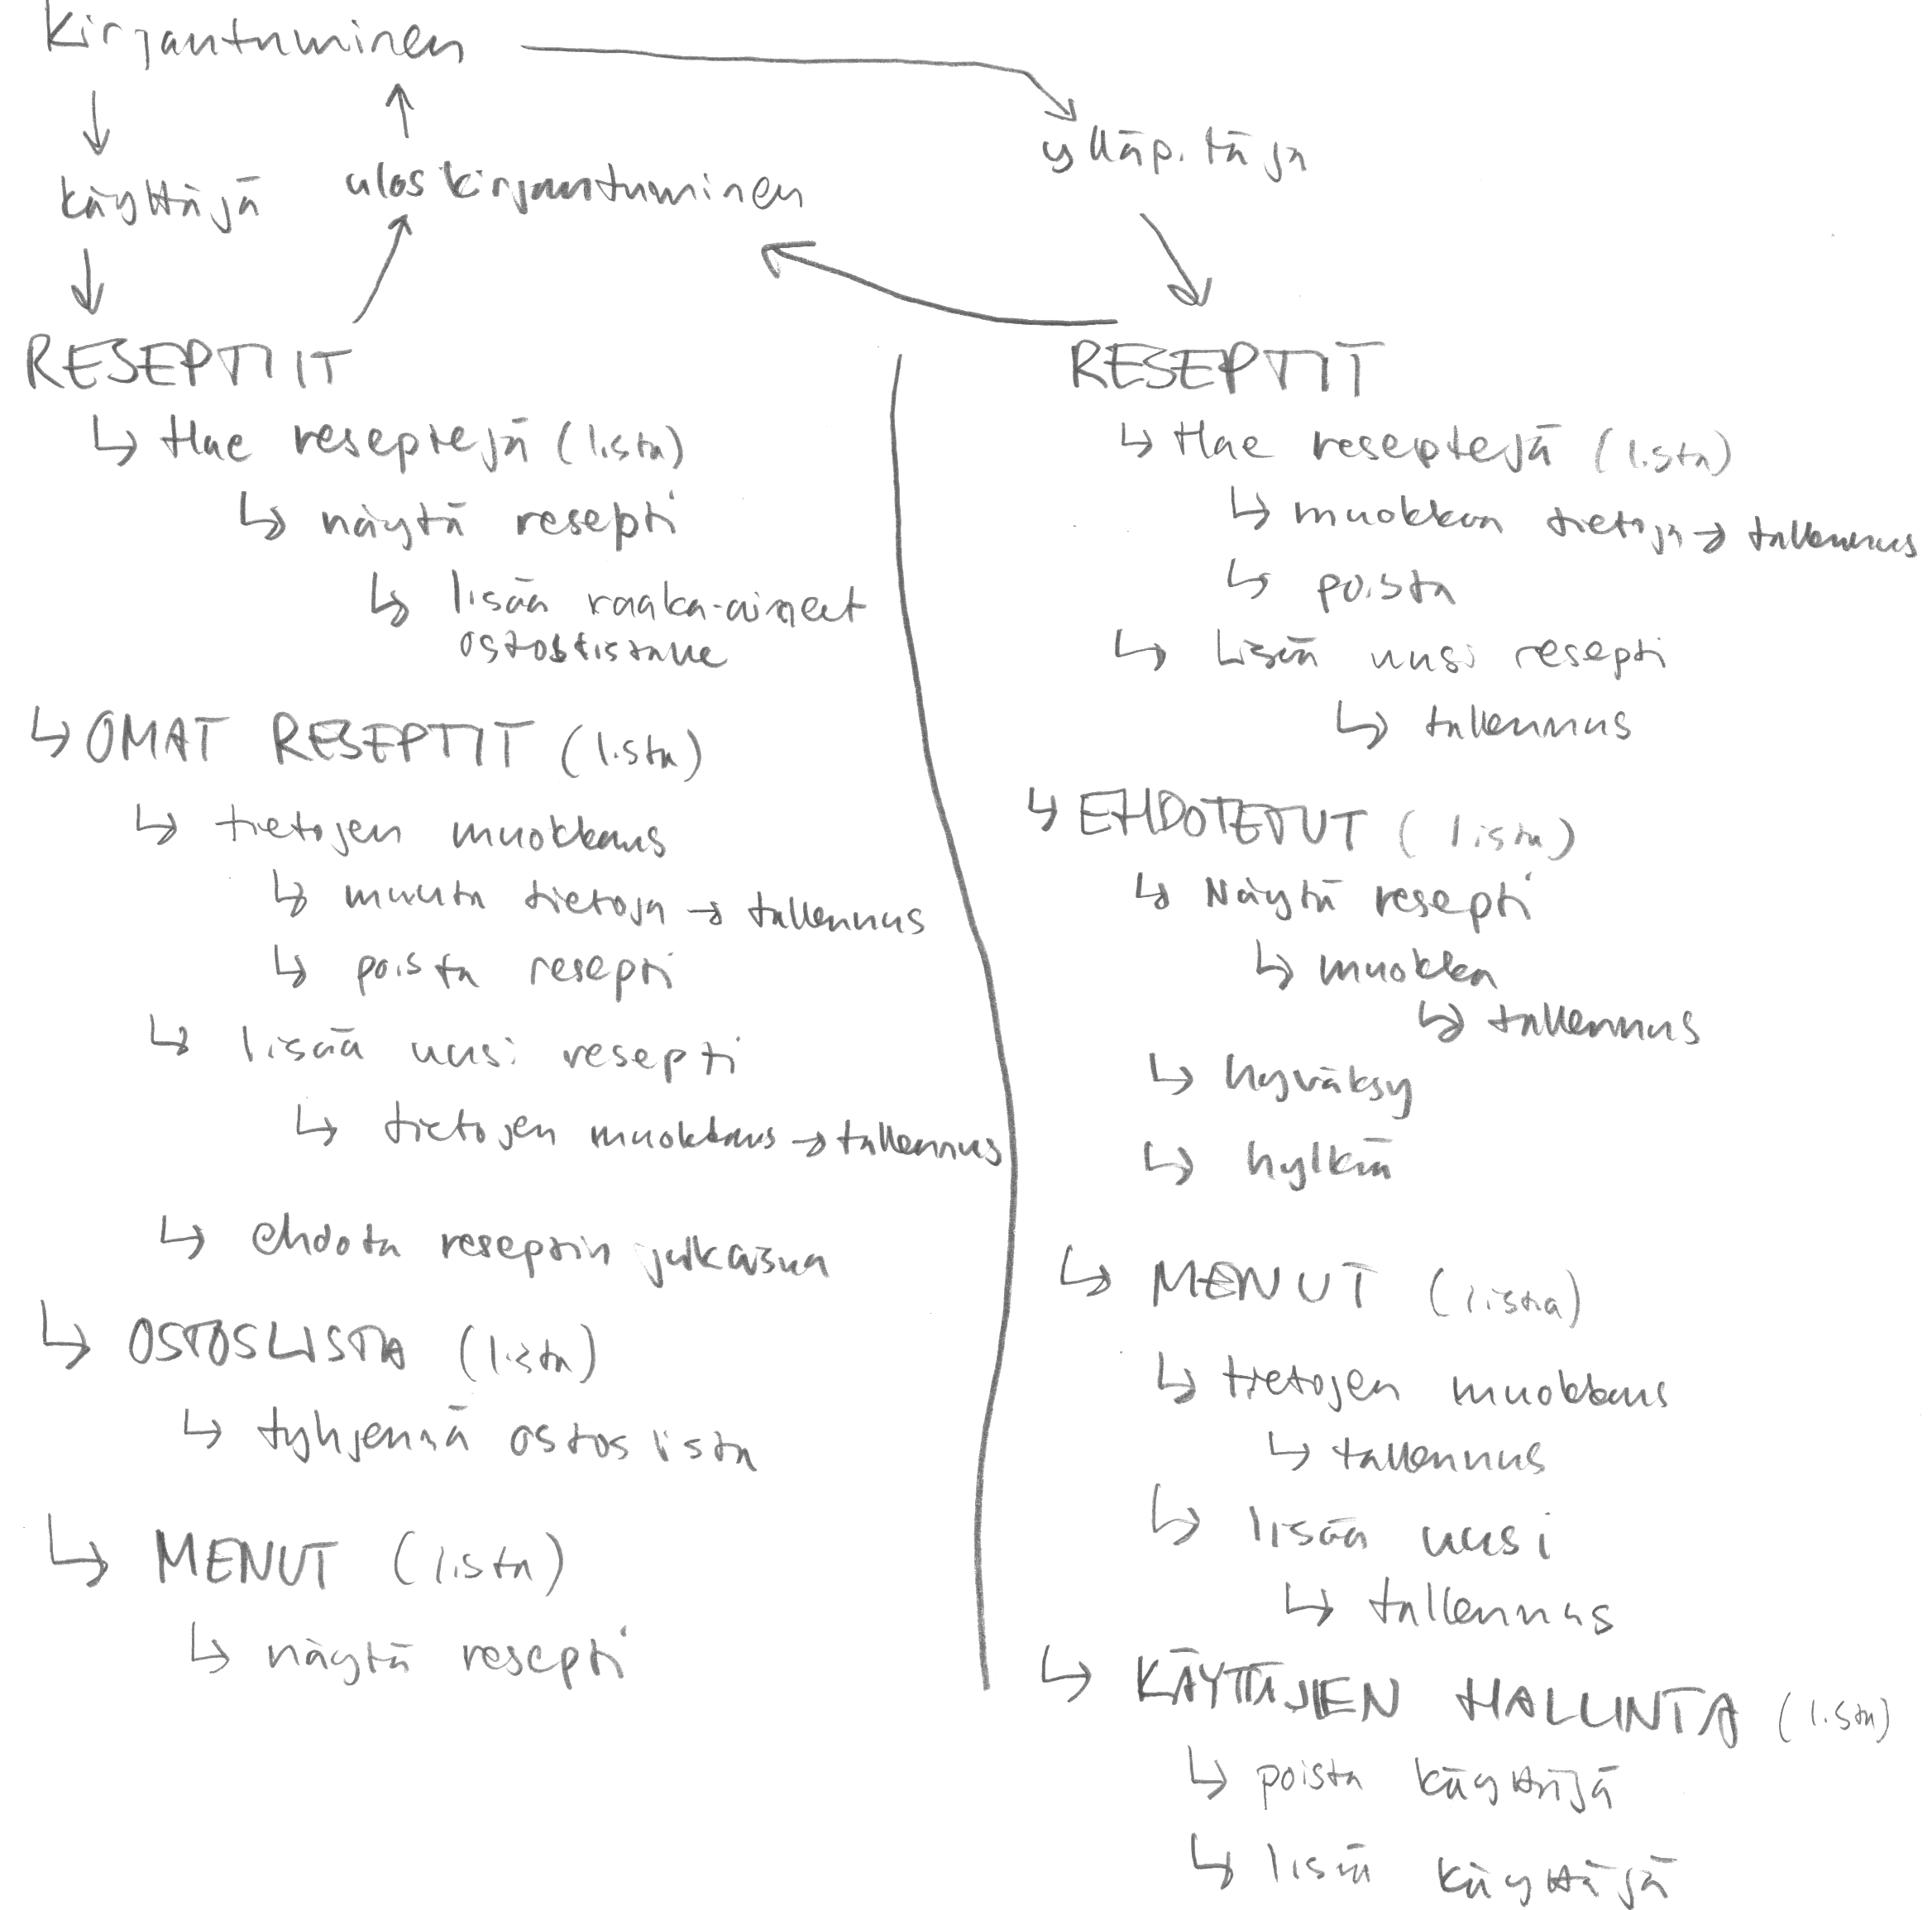 kirjautuminen
käyttäjä
uloskirjautuminen
ylläpitäjä
RESEPTIIT
↳ Hae reseptejä (lista)
↳ näytä resepti
↳ lisää raaka-aineet
ostoslistalle
↳ OMAT RESEPTIT (lista)
↳ tietojen muokkaus
↳ muuta tietoja → tallennus
↳ poista resepti
↳ lisää uusi resepti
↳ tietojen muokkaus → tallennus
↳ ehdota reseptin julkaisua
↳ OSTOSLISTA (lista)
↳ tyhjennä ostoslista
↳ MENUT (lista)
↳ näytä resepti
RESEPTIT
↳ Hae reseptejä (lista)
↳ muokkaa tietoja → tallennus
↳ poista
↳ Lisää uusi resepti
↳ tallennus
↳ EHDOTETUT (lista)
↳ Näytä resepti
↳ muokkaa
↳ tallennus
↳ hyväksy
↳ hylkää
↳ MENUT (lista)
↳ tietojen muokkaus
↳ tallennus
↳ lisää uusi
↳ tallennus
↳ KÄYTTÄJIEN HALLINTA (lista)
↳ poista käyttäjä
↳ lisää käyttäjä